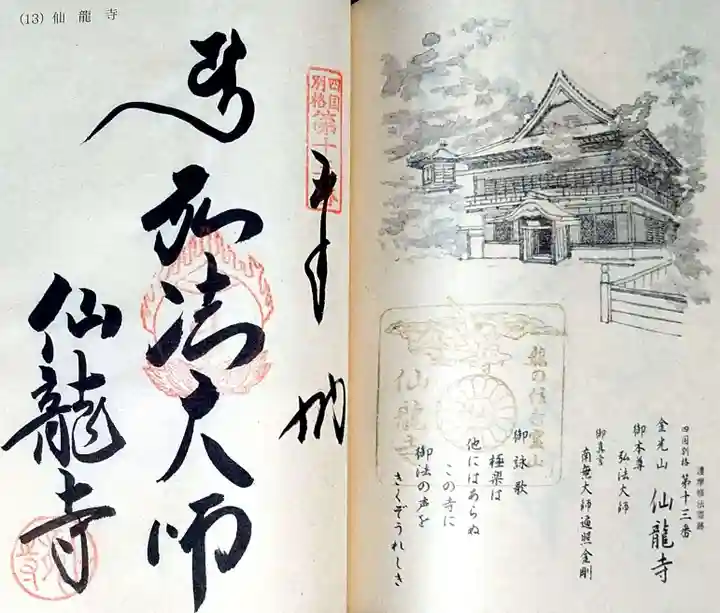 (13) 仙龍寺
四国
別格第十三番
奉納
弘法大師
仙龍寺
龍の信仰霊山
仙龍寺
四国別格 第十三番
金光山 仙龍寺
御本尊
弘法大師
御真言
南無大師遍照金剛
御詠歌
極楽は
他にはあらぬ
この寺に
御法の声を
きくぞうれしき